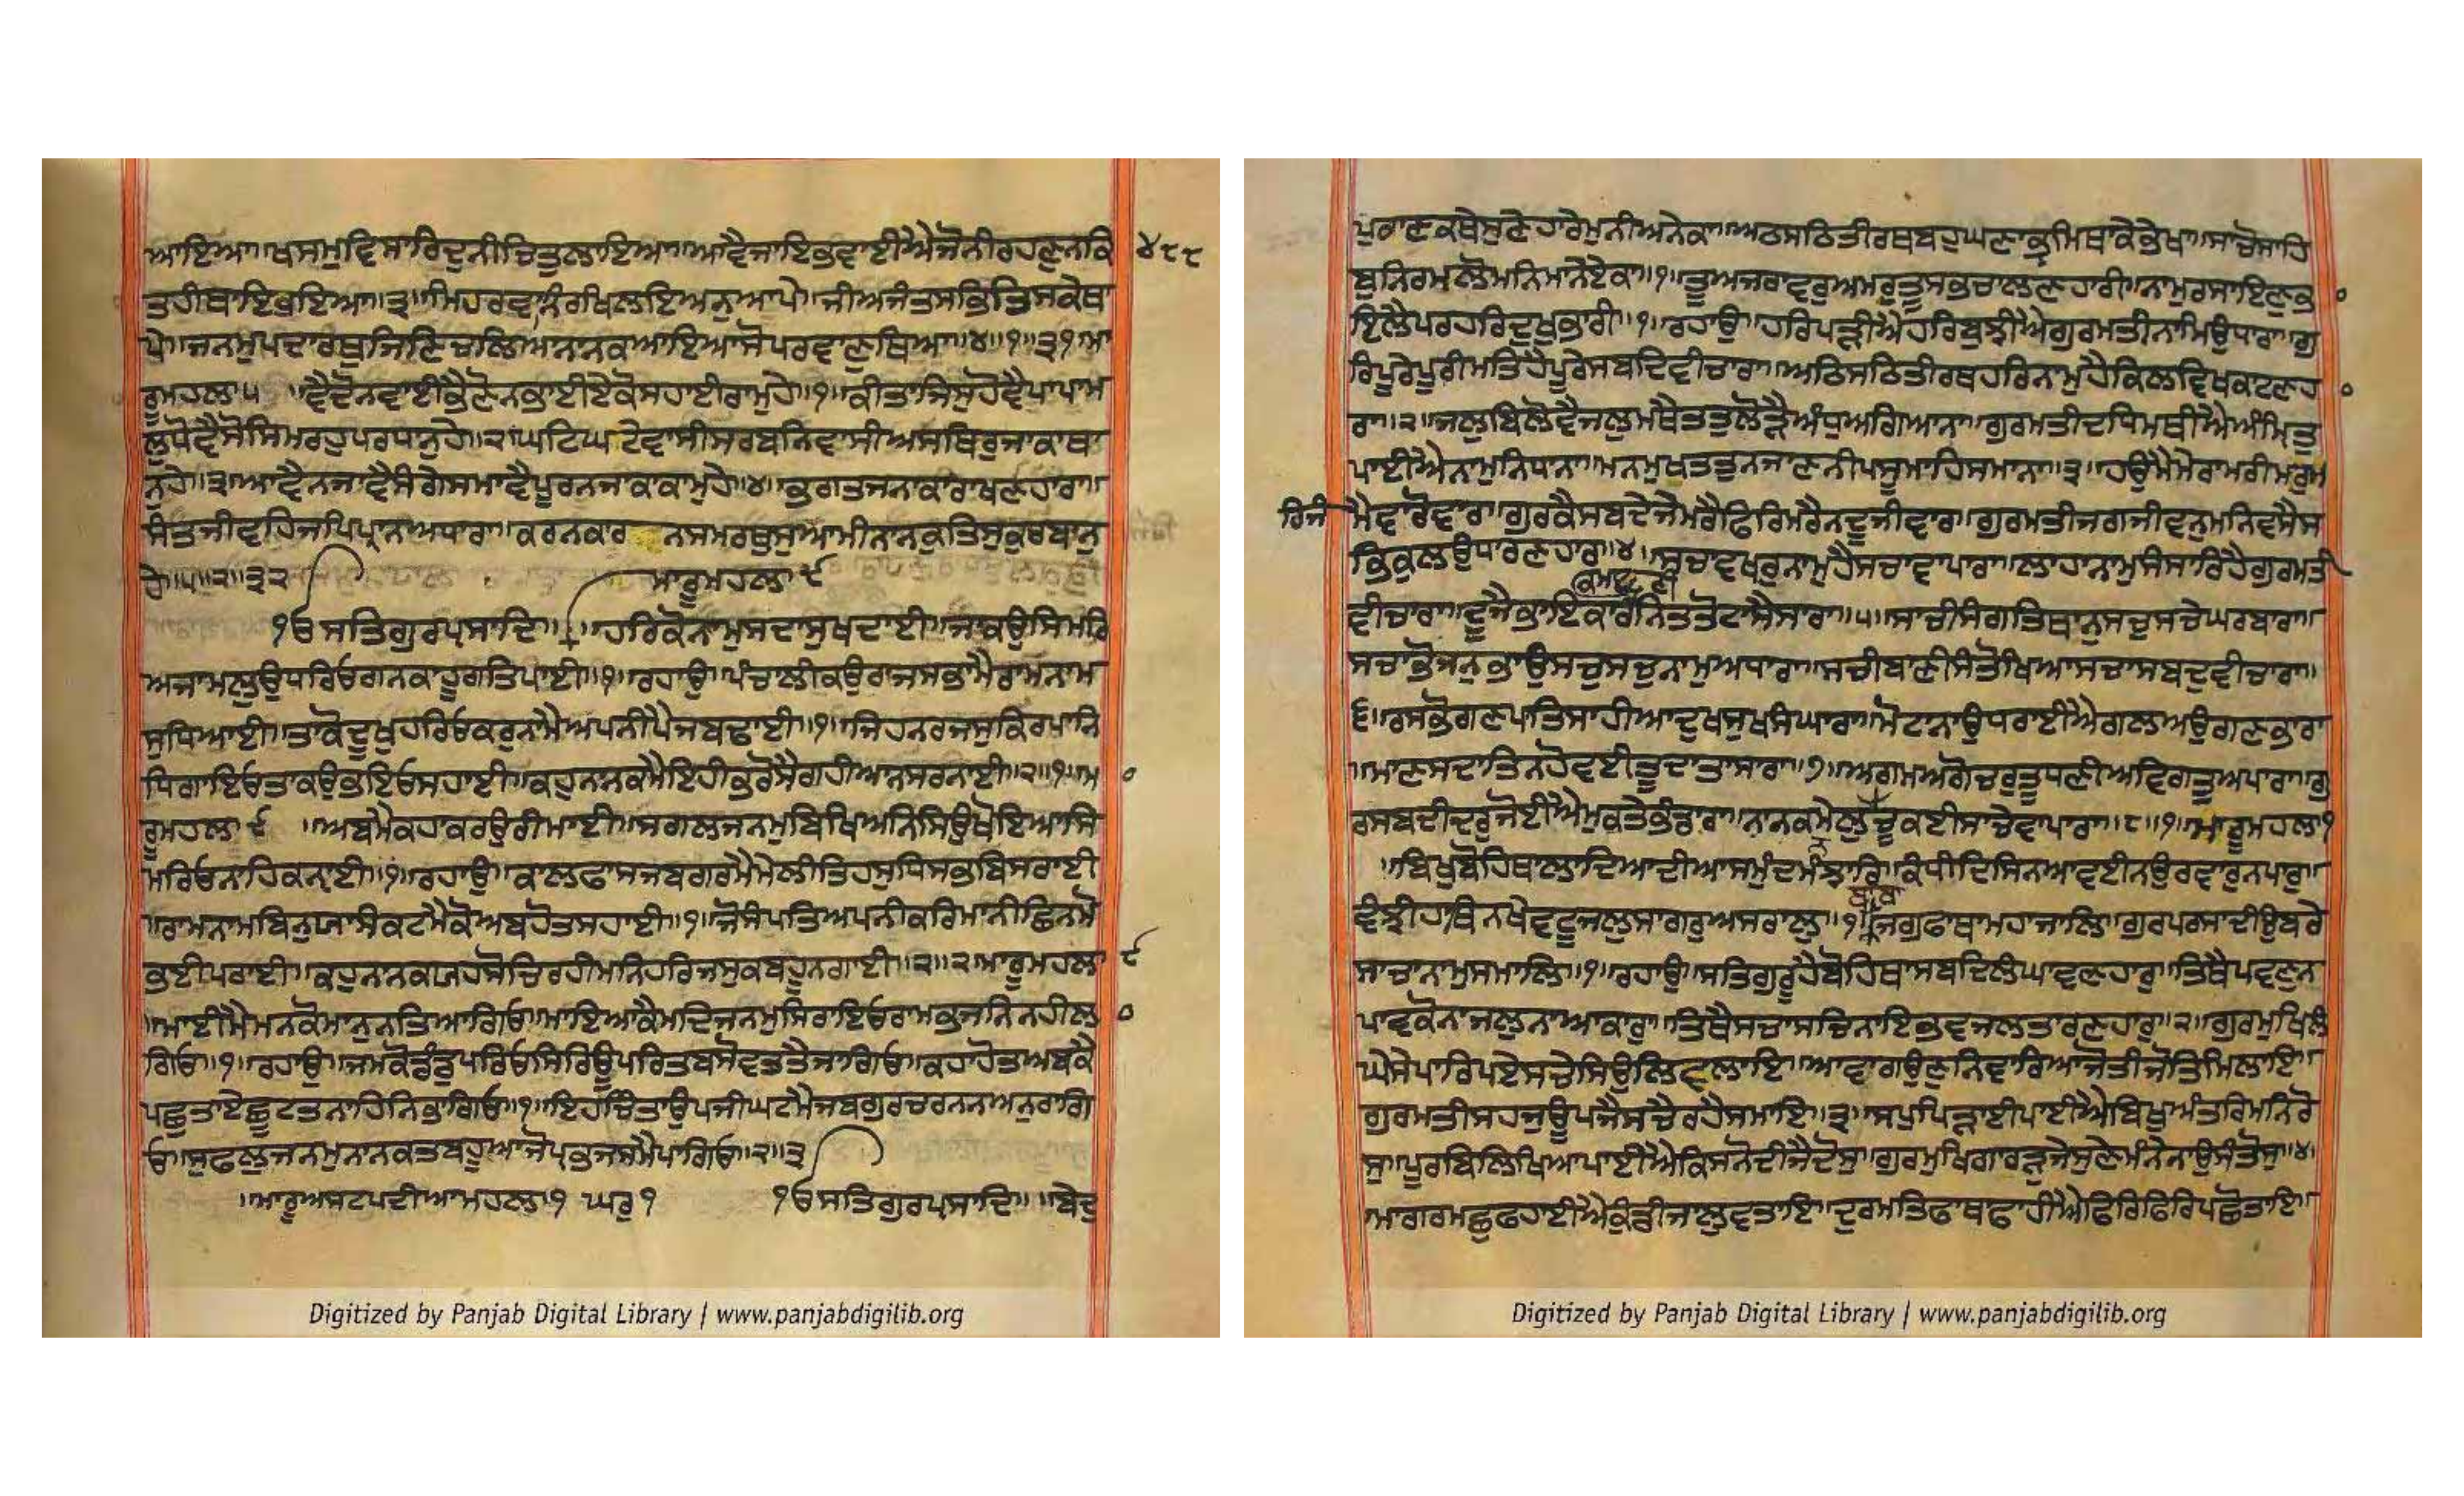 ਆਇਆ॥ਖਸਮੁਵਿਸਾਰਿਦੁਨੀਚਿਤੁਲਾਇਆ॥ਆਵੈਜਾਇਭਵਾਈਐਜੋਨੀਰਹਣੁਨਕਿ ੪੮੮
ਤਹੀਥਾਇਭਇਆ॥੩॥ਮਿਹਰਵਾਨਿਰਖਿਲਇਅਨੁਆਪੇ॥ਜੀਅਜੰਤਸਭਿਤਿਸਕੇਥਾ
ਪੇ॥ਜਨਮੁਪਦਾਰਥੁਜਿਣਿਚਲਿਆਨਾਨਕਆਇਆਸੋਪਰਵਾਣੁਥਿਆ॥੪॥੧॥੩੧॥ਮਾ
ਰੂਮਹਲਾ੫ ॥ਵੈਦੋਨਵਾਈਭੈਣੋਨਭਾਈਏਕੋਸਹਾਈਰਾਮੁਹੇ॥੧॥ਕੀਤਾਜਿਸੁਹੋਵੈਪਾਪਾਮ
ਲੁਧੋਵੈਸੋਸਿਮਰਹੁਪਰਧਾਨੁਹੇ॥੨॥ਘਟਿਘਟੇਵਾਸੀਸਰਬਨਿਵਾਸੀਅਸਥਿਰੁਜਾਕਾਥਾ
ਨੁਹੇ॥੩॥ਆਵੈਨਜਾਵੈਸੰਗੇਸਮਾਵੈਪੂਰਨਜਾਕਾਕਾਮੁਹੇ॥੪॥ਭਗਤਜਨਾਕਾਰਾਖਣਹਾਰਾ॥
ਸੰਤਜੀਵਹਿਜਪਿਪ੍ਰਾਨਅਧਾਰਾ॥ਕਰਨਕਾਰ ਨਸਮਰਥੁਸੁਆਮੀਨਾਨਕੁਤਿਸੁਕੁਰਬਾਨੁ
ਹੇ॥੫॥੨॥੩੨ ਮਾਰੂਮਹਲਾ੯
੧ਓਸਤਿਗੁਰਪ੍ਰਸਾਦਿ॥ ॥ਹਰਿਕੋਨਾਮੁਸਦਾਸੁਖਦਾਈ॥ਜਾਕਉਸਿਮਰਿ
ਅਜਾਮਲੁਉਧਰਿਓਗਨਕਾਹੂਗਤਿਪਾਈ॥੧॥ਰਹਾਉ॥ਪੰਚਾਲੀਕਉਰਾਜਸਭਾਮੈਰਾਮਨਾਮ
ਸੁਧਿਆਈ॥ਤਾਕੋਦੂਖੁਹਰਿਓਕਰੁਨਾਮੈਅਪਨੀਪੈਜਬਢਾਈ॥੧॥ਜਿਹਨਰਜਸੁਕਿਰਪਾਨਿ
ਧਿਗਾਇਓਤਾਕਉਭਇਓਸਹਾਈ॥ਕਹੁਨਾਨਕਮੈਇਹੀਭਰੋਸੈਗਹੀਆਨਸਰਨਾਈ॥੨॥੧॥ਮਾ ੦
ਰੂਮਹਲਾ੯ ॥ਅਬਮੈਕਹਾਕਰਉਰੀਮਾਈ॥ਸਗਲਜਨਮੁਬਿਖਿਅਨਿਸਿਉਖੋਇਆਸਿ
ਮਰਿਓਨਾਹਿਕਨ੍ਹਾਈ॥੧॥ਰਹਾਉ॥ਕਾਲਫਾਸਜਬਗਰਮੈਮੇਲੀਤਿਹਸੁਧਿਸਭਬਿਸਰਾਈ
॥ਰਾਮਨਾਮਬਿਨੁਯਾਸੰਕਟਮੈਕੋਅਬਹੋਤਸਹਾਈ॥੧॥ਜੋਸੰਪਤਿਅਪਨੀਕਰਿਮਾਨੀਛਿਨਮੋ
ਭਈਪਰਾਈ॥ਕਹੁਨਾਨਕਯਹਸੋਚਿਰਹੀਮਨਿਹਰਿਜਸੁਕਬਹੂਨਗਾਈ॥੨॥੨ਮਾਰੂਮਹਲਾ ੯
॥ਮਾਈਮੈਮਨਕੋਮਾਨੁਨਤਿਆਗਿਓ॥ਮਾਇਆਕੈਮਦਿਜਨਮੁਸਿਰਾਇਓਰਾਮਭਜਨਿਨਹੀਲਾ ੦
ਗਿਓ॥੧॥ਰਹਾਉ॥ਜਮਕੋਡੰਡੁਪਰਿਓਸਿਰਿਊਪਰਿਤਬਸੋਵਤਤੈਜਾਗਿਓ॥ਕਹਾਹੋਤਅਬਕੈ
ਪਛੁਤਾਏਛੂਟਤਨਾਹਿਨਿਭਾਗਿਓ॥੧॥ਇਹਚਿੰਤਾਉਪਜੀਘਟਮੈਜਬਗੁਰਚਰਨਨਅਨੁਰਾਗਿ
ਓ॥ਸੁਫਲੁਜਨਮੁਨਾਨਕਤਬਹੂਆਜੋਪ੍ਰਭਜਸਮੈਪਾਗਿਓ॥੨॥੩
॥ਮਾਰੂਅਸਟਪਦੀਆਮਹਲਾ੧ ਘਰੁ੧ ੧ਓਸਤਿਗੁਰਪ੍ਰਸਾਦਿ॥ ॥ਬੇਦੁ
Digitized by Panjab Digital Library | www.panjabdigilib.org
ਪੁਰਾਣਕਥੇਸੁਣੇਹਾਰੇਮੁਨੀਅਨੇਕਾ॥ਅਠਸਠਿਤੀਰਥਬਹੁਘਣਾਭ੍ਰਮਿਥਾਕੇਭੇਖਾ॥ਸਾਚੋਸਾਹਿ
ਬੁਨਿਰਮਲੋਮਨਿਮਾਨੇਏਕਾ॥੧॥ਤੂਅਜਰਾਵਰੁਅਮਰੁਤੂਸਭਚਾਲਣਹਾਰੀ॥ਨਾਮੁਰਸਾਇਣੁਭਾ ੦
ਇਲੈਪਰਹਰਿਦੁਖੁਭਾਰੀ॥੧॥ਰਹਾਉ॥ਹਰਿਪੜੀਐਹਰਿਬੁਝੀਐਗੁਰਮਤੀਨਾਮਿਉਧਾਰਾ॥ਗੁ
ਰਿਪੂਰੇਪੂਰੀਮਤਿਹੈਪੂਰੇਸਬਦਿਵੀਚਾਰਾ॥ਅਠਿਸਠਿਤੀਰਥਹਰਿਨਾਮੁਹੈਕਿਲਵਿਖਕਾਟਣਹਾ ੦
ਰਾ॥੨॥ਜਲੁਬਿਲੋਵੈਜਲੁਮਥੈਤਤੁਲੋੜੈਅੰਧੁਅਗਿਆਨਾ॥ਗੁਰਮਤੀਦਧਿਮਥੀਐਅੰਮ੍ਰਿਤੁ
ਪਾਈਐਨਾਮੁਨਿਧਾਨਾ॥ਮਨਮੁਖਤਤੁਨਜਾਣਨੀਪਸੂਮਾਹਿਸਮਾਨਾ॥੩॥ਹਉਮੈਮੇਰਾਮਰੀਮਰੁਮ
ਰਿਜੰ ਮੈਵਾਰੋਵਾਰਾ॥ਗੁਰਕੈਸਬਦੇਜੇਮਰੈਫਿਰਿਮਰੈਨਦੂਜੀਵਾਰਾ॥ਗੁਰਮਤੀਜਗਜੀਵਨੁਮਨਿਵਸੈਸ
ਭਿਕੁਲਉਧਾਰਣਹਾਰਾ॥੪॥ਸਚਾਵਖਰੁਨਾਮੁਹੈਸਚਾਵਾਪਾਰਾ॥ਲਾਹਾਨਾਮੁਸੰਸਾਰਿਹੈਗੁਰਮਤੀ
ਵੀਚਾਰਾ॥ਦੂਜੈਭਾਇਕਾਰਨਿਤਤੋਟਾਸੈਸਾਰਾ॥੫॥ਸਾਚੀਸੰਗਤਿਥਾਨੁਸਚੁਸਚੇਘਰਬਾਰਾ॥
ਸਚਾਭੋਜਨੁਭਾਉਸਚੁਸਚੁਨਾਮੁਅਧਾਰਾ॥ਸਚੀਬਾਣੀਸੰਤੋਖਿਆਸਚਾਸਬਦੁਵੀਚਾਰਾ॥
੬॥ਰਸਭੋਗਣਪਾਤਿਸਾਹੀਆਦੁਖਸੁਖਸੰਘਾਰਾ॥ਮੋਟਾਨਾਉਧਰਾਈਐਗਲਿਅਉਗਣਭਾਰਾ
॥ਮਾਣਸਦਾਤਿਨਹੋਵਈਤੂਦਾਤਾਸਾਰਾ॥੭॥ਅਗਮਅਗੋਚਰੁਤੂਧਣੀਅਵਿਗਤੁਅਪਾਰਾ॥ਗੁ
ਰਸਬਦੀਦਰੁਜੋਈਐਮੁਕਤੇਭੰਡਾਰਾ॥ਨਾਨਕਮੇਲੁਚੂਕਈਸਾਚੇਵਾਪਾਰਾ॥੮॥੧॥ਮਾਰੂਮਹਲਾ੧
॥ਬਿਖੁਬੋਹਿਥਾਲਾਦਿਆਦੀਆਸਮੁੰਦਮੰਝਾਰਿ॥ਕੰਧੀਦਿਸਿਨਆਵਈਨਉਰਵਾਰੁਨਪਾਰੁ॥
ਵੰਝੀਹਾਥਿਨਖੇਵਟੂਜਲੁਸਾਗਰੁਅਸਰਾਲੁ॥੧॥ਬਾਬਾਜਗੁਫਾਥਾਮਹਾਜਾਲਿ॥ਗੁਰਪਰਸਾਦੀਉਬਰੇ
ਸਾਚਾਨਾਮੁਸਮਾਲਿ॥੧॥ਰਹਾਉ॥ਸਤਿਗੁਰੂਹੈਬੋਹਿਥਾਸਬਦਿਲੰਘਾਵਣਹਾਰੁ॥ਤਿਥੈਪਵਣੁਨ
ਪਾਵਕੋਨਾਜਲੁਨਾਆਕਾਰੁ॥ਤਿਥੈਸਚਾਸਚਿਨਾਇਭਵਜਲਤਾਰਣਹਾਰੁ॥੨॥ਗੁਰਮੁਖਿਲੰ
ਘੇਸੇਪਾਰਿਪਏਸਚੇਸਿਉਲਿਵਲਾਇ॥ਆਵਾਗਉਣੁਨਿਵਾਰਿਆਜੋਤੀਜੋਤਿਮਿਲਾਇ॥
ਗੁਰਮਤੀਸਹਜੁਊਪਜੈਸਚੈਰਹੈਸਮਾਇ॥੩॥ਸਪੁਪਿੜਾਈਪਾਈਐਬਿਖੁਅੰਤਰਿਮਨਿਰੋ
ਸੁ॥ਪੂਰਬਿਲਿਖਿਆਪਾਈਐਕਿਸਨੋਦੀਜੈਦੋਸੁ॥ਗੁਰਮੁਖਿਗਾਰੜੁਜੇਸੁਣੇਮੰਨੇਨਾਉਸੰਤੋਸੁ॥੪॥
ਮਾਗਰਮਛੁਫਹਾਈਐਕੁੰਡੀਜਾਲੁਵਤਾਇ॥ਦੁਰਮਤਿਫਾਥਾਫਾਹੀਐਫਿਰਿਫਿਰਿਪਛੋਤਾਇ॥
Digitized by Panjab Digital Library | www.panjabdigilib.org